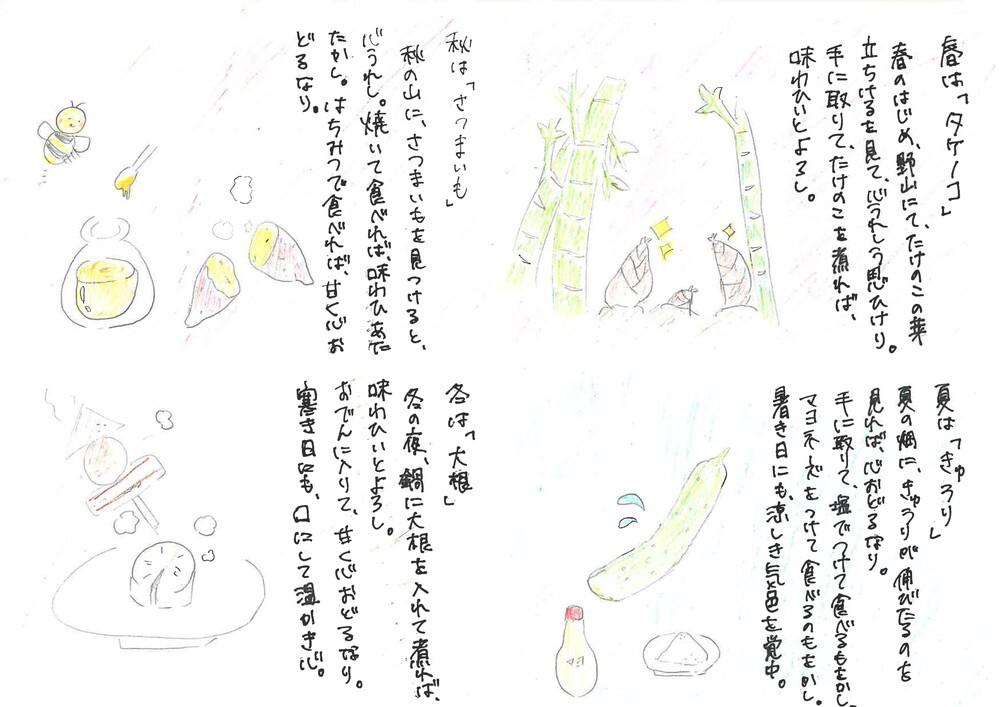 春は「タケノコ」
春のはじめ、野山にて、たけのこの芽
立ちけるを見て、心うれしう思ひけり。
手に取りて、たけのこを煮れば、
味わひいとよろし。
夏は「きゅうり」
夏の畑に、きゅうりが伸びたるのを
見れば、心おどるなり。
手に取りて、塩でつけて食べるもをかし、
マヨネーズをつけて食べるのもをかし。
暑き日にも、涼しき気色を覚中。
マヨ
秋は「さつまいも」
秋の山に、さつまいもを見つけると、
心うれし。焼いて食べれば、味わひあた
たかし。はちみつで食べれば、甘く心お
どるなり。
冬は「大根」
冬の夜、鍋に大根を入れて煮れば、
味わひいとよろし。
おでんに入りて、甘く心おどるなり。
寒き日にも、口にして温かき心。